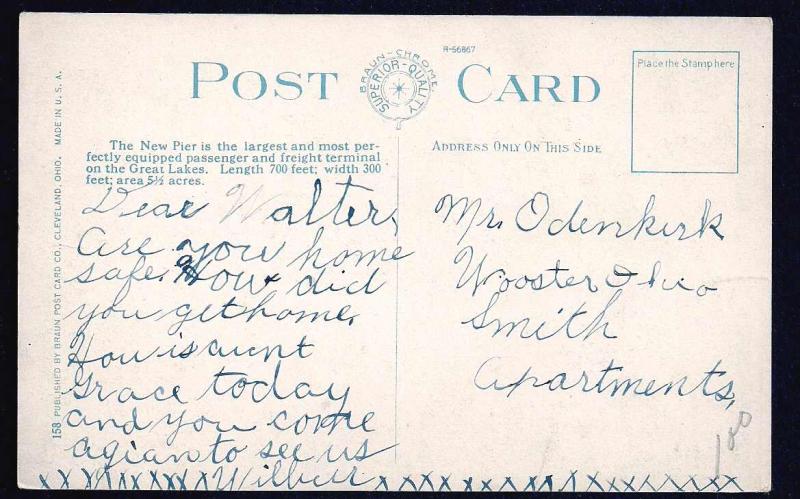 R-56867
POST CARD
BRAUN-CHROME
SUPERIOR-QUALITY
Place the Stamp here
The New Pier is the largest and most per-
fectly equipped passenger and freight terminal
on the Great Lakes. Length 700 feet; width 300
feet; area 5½ acres.
ADDRESS ONLY ON THIS SIDE
158 PUBLISHED BY BRAUN POST CARD CO., CLEVELAND, OHIO. MADE IN U.S.A.
Dear Walter,
are you home
safe. How did
you get home.
How is aunt
Grace today
and you come
agian to see us
Wilbur
xxxxxxxxxxxxxxxxxxxxxxxxxxxxxxx
Mr. Odenkirk
Wooster Ohio
Smith
Apartments,